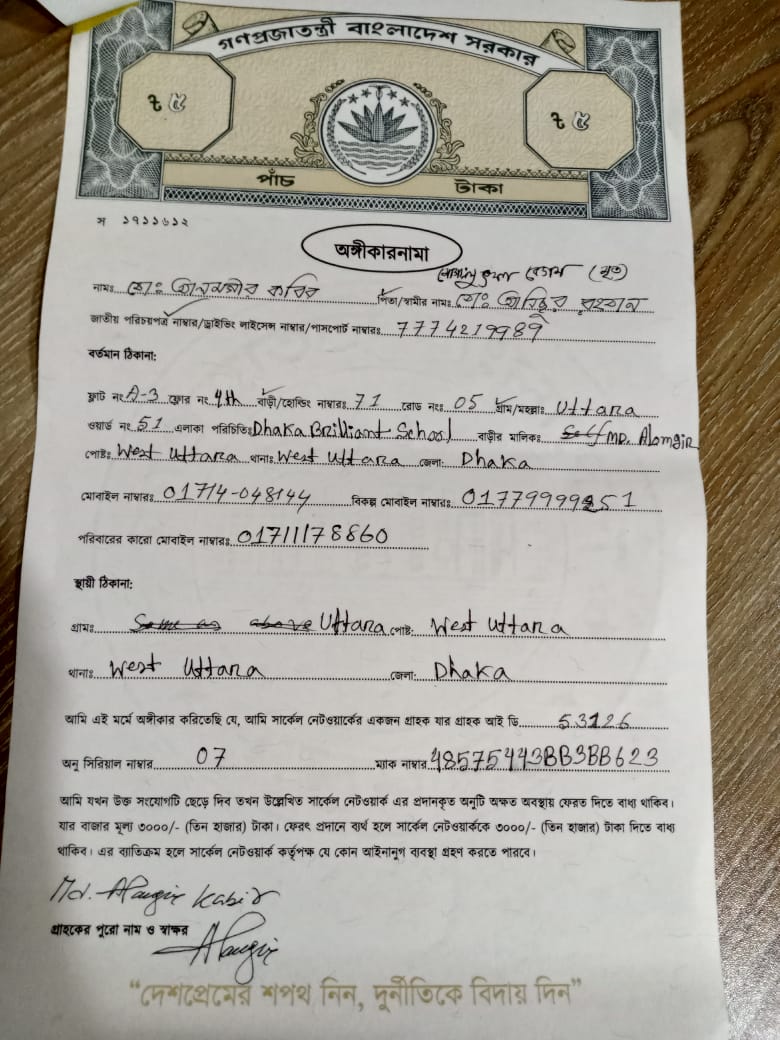 গণপ্রজাতন্ত্রী বাংলাদেশ সরকার
৳ ৫ ৳ ৫
পাঁচ টাকা
স ১৭১১৬১২
অঙ্গীকারনামা
(মৃত)
নামঃ মোঃ আলমগীর কবির পিতা/স্বামীর নামঃ মোঃ রহমান
জাতীয় পরিচয়পত্র নাম্বার/ড্রাইভিং লাইসেন্স নাম্বার/পাসপোর্ট নাম্বারঃ 7774219989
বর্তমান ঠিকানা:
ফ্লাট নং A-3 ফ্লোর নং 4th বাড়ী/হোল্ডিং নাম্বারঃ 71 রোড নংঃ 05 গ্রাম/মহল্লাঃ Uttara
ওয়ার্ড নং 51 এলাকা পরিচিতিঃ Dhaka Brilliant School বাড়ীর মালিকঃ Self MD. Alomgir
পোষ্টঃ West Uttara থানাঃ West Uttara জেলা: Dhaka
মোবাইল নাম্বারঃ 01714-048144 বিকল্প মোবাইল নাম্বারঃ 01779999251
পরিবারের কারো মোবাইল নাম্বারঃ 01711178860
স্থায়ী ঠিকানা:
গ্রামঃ Same as above Uttara পোষ্ট: West Uttara
থানাঃ West Uttara জেলা: Dhaka
আমি এই মর্মে অঙ্গীকার করিতেছি যে, আমি সার্কেল নেটওয়ার্কের একজন গ্রাহক যার গ্রাহক আই ডি 53126
অনু সিরিয়াল নাম্বার 07 ম্যাক নাম্বার 48575443BB3BB623
আমি যখন উক্ত সংযোগটি ছেড়ে দিব তখন উল্লেখিত সার্কেল নেটওয়ার্ক এর প্রদানকৃত অনুটি অক্ষত অবস্থায় ফেরত দিতে বাধ্য থাকিব।
যার বাজার মূল্য ৩০০০/- (তিন হাজার) টাকা। ফেরৎ প্রদানে ব্যর্থ হলে সার্কেল নেটওয়ার্ককে ৩০০০/- (তিন হাজার) টাকা দিতে বাধ্য
থাকিব। এর ব্যতিক্রম হলে সার্কেল নেটওয়ার্ক কর্তৃপক্ষ যে কোন আইনানুগ ব্যবস্থা গ্রহণ করতে পারবে।
Md. Alamgir Kabir
গ্রাহকের পুরো নাম ও স্বাক্ষর
Alamgir
“দেশপ্রেমের শপথ নিন, দুর্নীতিকে বিদায় দিন”